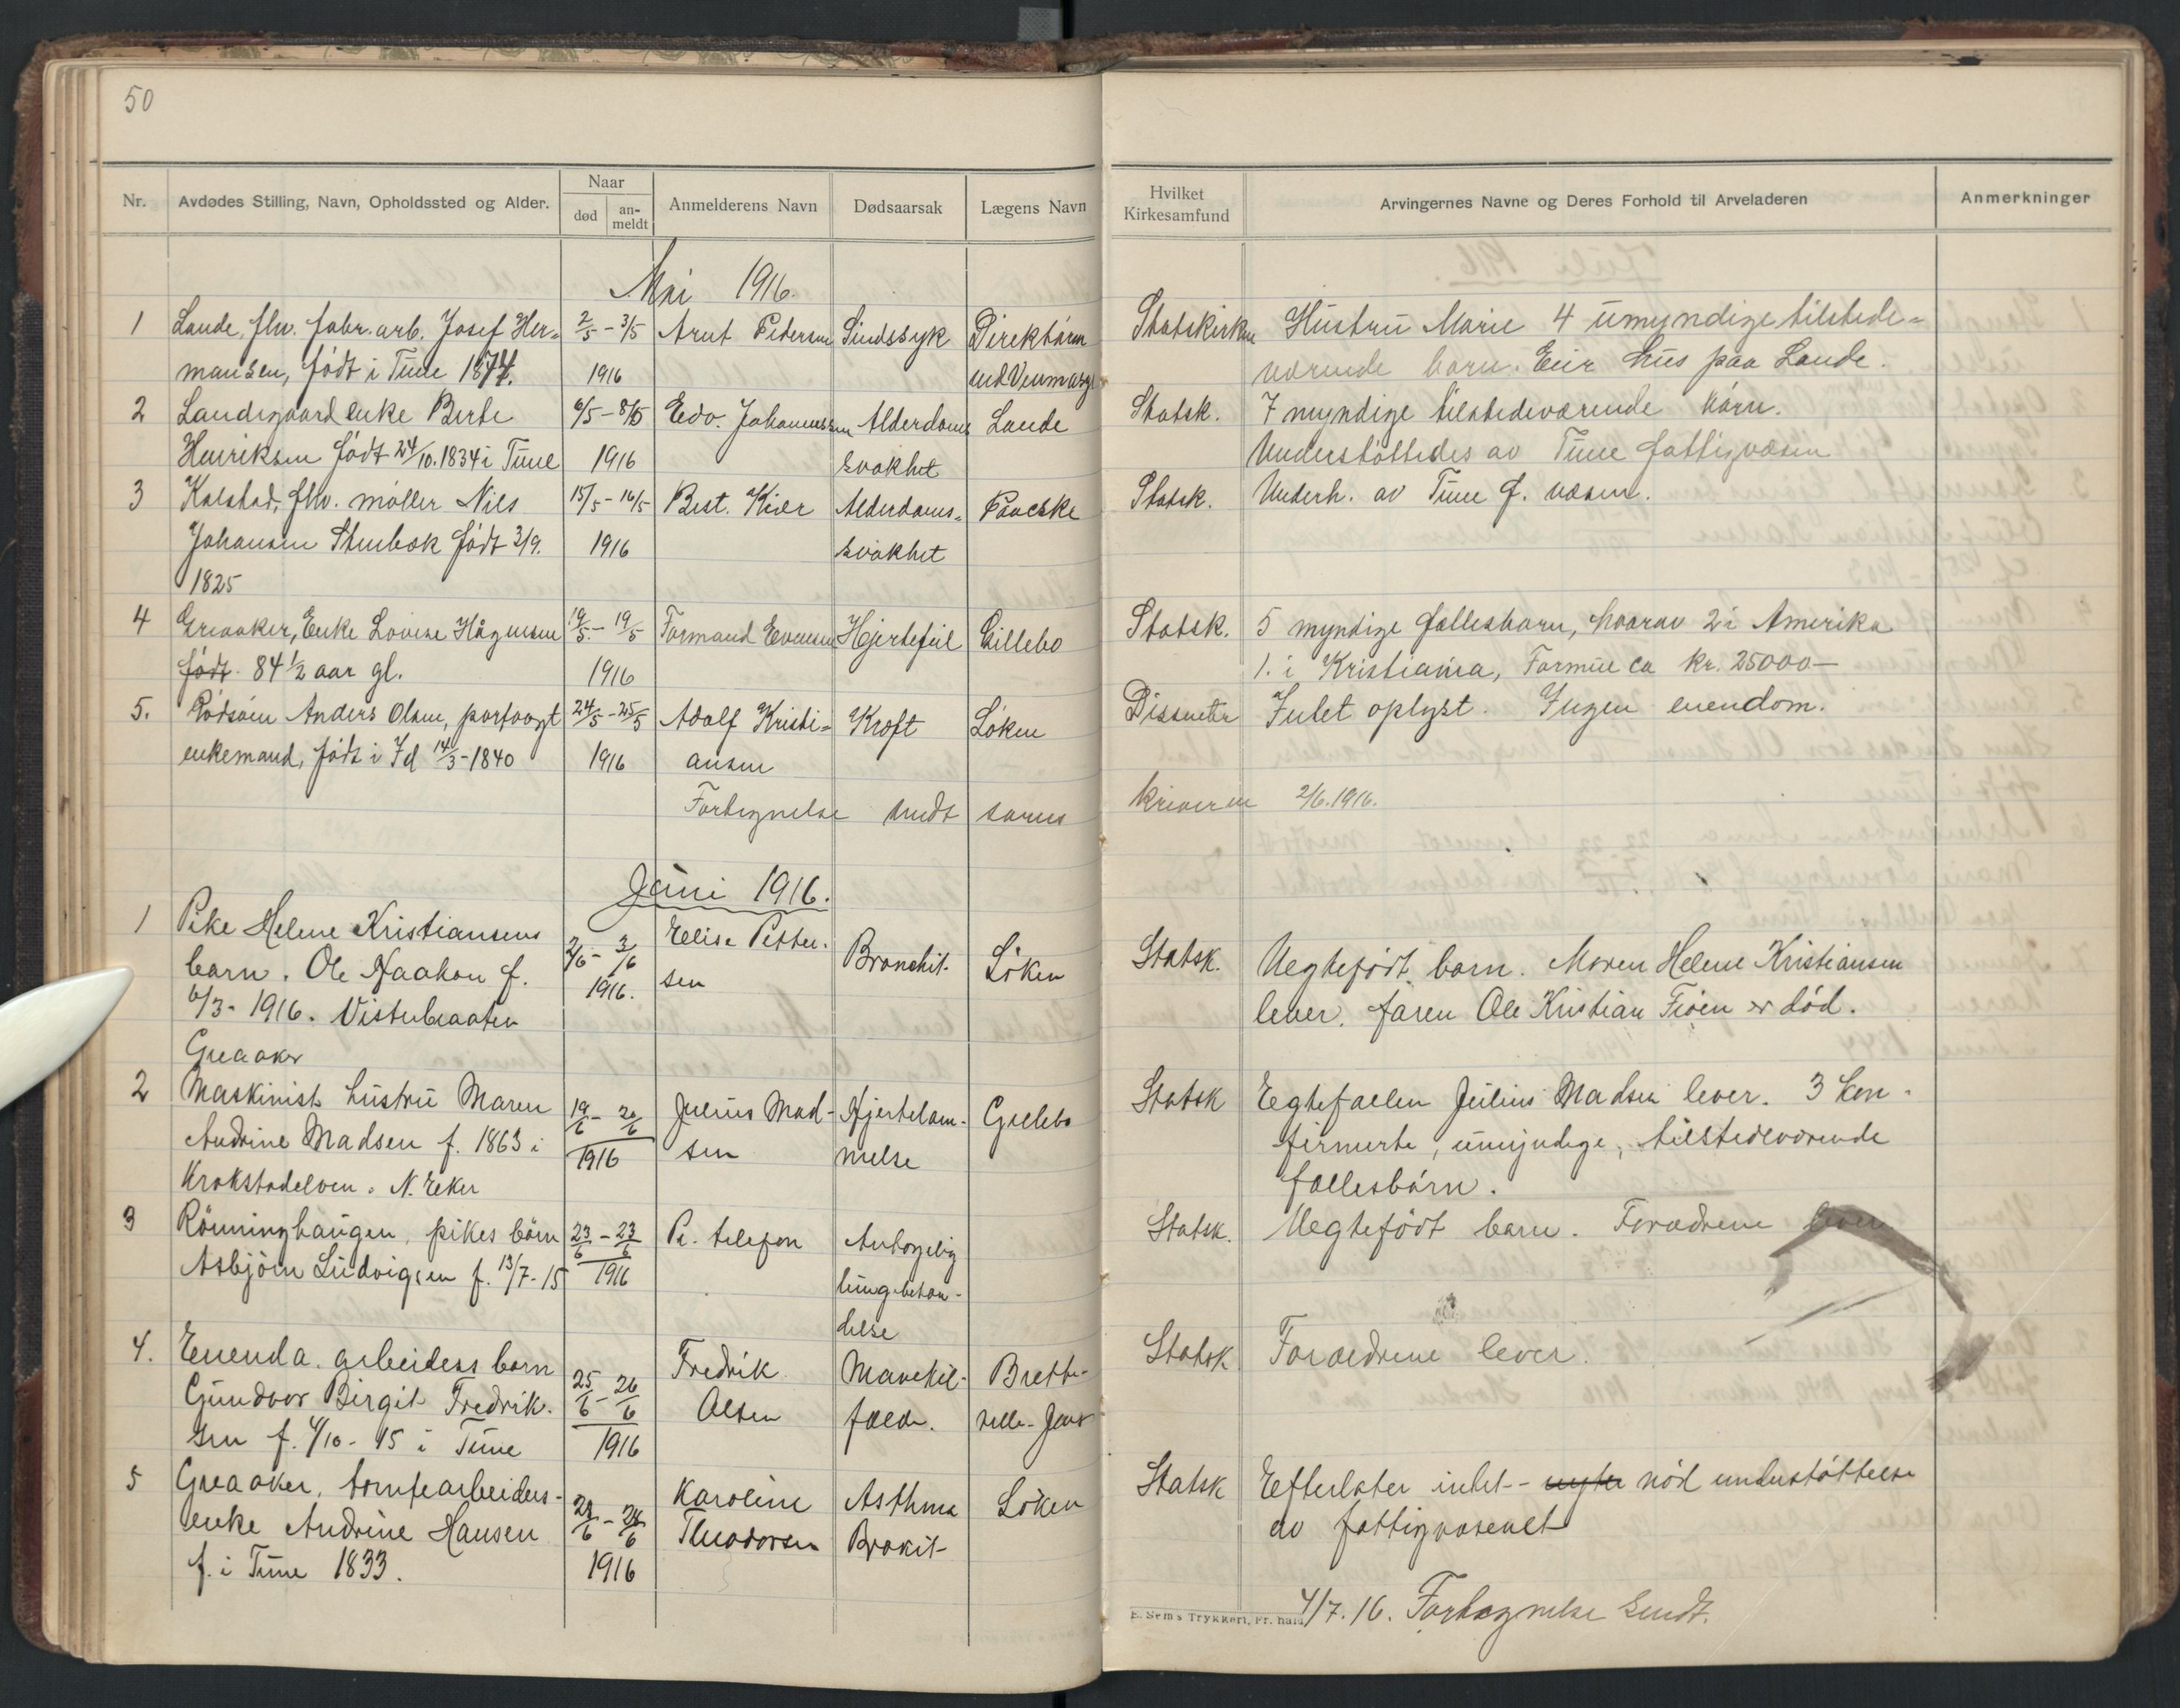 50
Nr.
Avdødes Stilling, Navn, Opholdssted og Alder.
Naar
død
an-
meldt
Anmelderens Navn
Dødsaarsak
Lægens Navn
Hvilket
Kirkesamfund
Arvingernes Navne og Deres Forhold til Arveladeren
Anmerkninger
Mai 1916.
1 Lande, fhv. fabr. arb. Josef Her- 2/5 - 3/5 Arnt Pedersen Sindssyk Direktøren Statskirken Hustru Marie 4 umyndige tilstede-
mansen, født i Tune 1874. 1916 værende børn. Eier hus paa Lande.
2 Landegaard enke Berte 6/5 - 8/5 Edv. Johannessen Alderdoms Lande Statsk. 7 myndige tilstedeværende børn.
Henriksen født 24/10. 1834 i Tune 1916 svakhet Understøttedes av Tune fattigvæsen
3 Kalstad, fhv. møller Nils 15/5 - 16/5 Best. Kiær Alderdoms- Paaske Statsk. Underh. av Tune f. væsen.
Johansen Stenbek født 3/9. 1916 svakhet
1825
4 Greaaker, Enke Lovise Hågensen 19/5 - 19/5 Formand Evensen Hjertefeil Gillebo Statsk. 5 myndige fællesbarn, hvorav 2 i Amerika
født 84 1/2 aar gl. 1916 1. i Kristiania, Formue ca kr. 25000 —
5. Rødsøien Anders Olsen, parfoogt 24/5 - 25/5 Adolf Kristi- Kræft Løken Dissenter Intet oplyst. Ingen eiendom.
enkemand, født i Id 14/3 - 1840 1916 ansen
Fortegnelse sendt sorens kriveren 2/6. 1916.
Juni 1916.
1 Pike Helene Kristiansens 2/6 - 3/6 Elise Petter- Bronchit. Løken Statsk. Uegtefødt barn. Moren Helene Kristiansen
barn. Ole Haakon f. 1916. sen lever. faren Ole Kristian Fiøen er død.
6/3 - 1916. Visterbraaten
Greaaker
2 Maskinist hustru Maren 19/6 - 20/6 Julius Mad- Hjertelam- Gillebo Statsk Egtefællen Julius Madsen lever. 3 kon-
Andrine Madsen f. 1863 i 1916 sen melse firmerte, umyndige, tilstedeværende
Krokstadelven. N. Eker fællesbørn.
3 Rønninghaugen, pikes børn 23/6 - 23/6 Pr. telefon Antagelig Statsk. Uegtefødt barn. Forældrene lever
Asbjørn Ludvigsen f. 13/7 - 15 1916 lungebetæn-
delse
4. Enenda. arbeiders barn 25/6 - 26/6 Fredrik Mavetil- Brette- Statsk Forældrene lever.
Gundvor Birgit Fredrik- Olsen fælde. ville-Jens
sen f. 4/10 - 15 i Tune 1916
5 Greaaker, tomtearbeiders- 24/6 Karoline Asthma Løken Statsk Efterlater intet - nyter nød understøttelse
enke Andrine Hansen Theodorsen Brokit av fattigvæsenet
f. i Tune 1833. 1916
4/7. 16. Fortegnelse sendt.
E. Sem's Trykkeri, Fr. hald